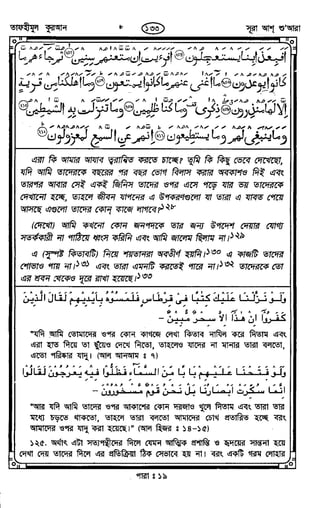 তাফহীমুল কুরআন * ১৩৩ সূরা আশ্ শু'আরা
أَفَبِعَذَابِنَا يَسْتَعْجِلُونَ أَفَرَءَيْتَ إِنْ مَتَّعْنَاهُمْ سِنِينَ ثُمَّ جَاءَهُمْ مَا
كَانُوا يُوعَدُونَ مَا أَغْنَى عَنْهُمْ مَا كَانُوا يُمَتَّعُونَ وَمَا أَهْلَكْنَا مِنْ قَرْيَةٍ
إِلَّا لَهَا مُنْذِرُونَ ذِكْرَى وَمَا كُنَّا ظَالِمِينَ وَمَا تَنَزَّلَتْ بِهِ الشَّيَاطِينُ
وَمَا يَنْبَغِي لَهُمْ وَمَا يَسْتَطِيعُونَ إِنَّهُمْ عَنِ السَّمْعِ لَمَعْزُولُونَ
এরা কি আমার আযাব ত্বরান্বিত করতে চাচ্ছে? তুমি কি কিছু ভেবে দেখেছো,
যদি আমি তাদেরকে বছরের পর বছর ভোগ বিলাস করার অবকাশও দিই এবং
তারপর আবার সেই একই জিনিস তাদের ওপর এসে পড়ে যার ভয় তাদেরকে
দেখানো হচ্ছে, তাহলে জীবন যাপনের এ উপকরণগুলো যা তারা এ যাবত পেয়ে
আসছে এগুলো তাদের কোন্ কাজে লাগবে?১২৮
(দেখো) আমি কখনো কোন জনপদকে তার জন্য উপদেশ দেয়ার যোগ্য
সতর্ককারী না পাঠিয়ে ধ্বংস করিনি এবং আমি জালেম ছিলাম না।১২৯
এ (সুস্পষ্ট কিতাবটি) নিয়ে শয়তানরা অবতীর্ণ হয়নি।১৩০ এ কাজটি তাদের
শোভাও পায় না।১৩১ এবং তারা এমনটি করতেই পারে না।১৩২ তাদেরকে তো
এর শ্রবণ থেকেও দূরে রাখা হয়েছে।১৩৩
وَلَوْ نَزَّلْنَا عَلَيْكَ كِتَابًا فِي قِرْطَاسٍ فَلَمَسُوهُ بِأَيْدِيهِمْ لَقَالَ الَّذِينَ
كَفَرُوا إِنْ هَذَا إِلَّا سِحْرٌ مُبِينٌ -
"যদি আমি তোমাদের ওপর কোন কাগজে লেখা কিতাব নাযিল করে দিতাম এবং
এরা হাত দিয়ে তা ছুঁয়েও দেখে নিতো, তাহলেও যাদের না মানার তারা বলতো,
এতো পরিষ্কার যাদু। (আল আনআম : ৭)
وَلَوْ فَتَحْنَا عَلَيْهِمْ بَابًا مِنَ السَّمَاءِ فَظَلُّوا فِيهِ يَعْرُجُونَ لَقَالُوا
إِنَّمَا سُكِّرَتْ أَبْصَارُنَا بَلْ نَحْنُ قَوْمٌ مَسْحُورُونَ -
"আর যদি আমি তাদের ওপর আকাশের কোন দরজাও খুলে দিতাম এবং তারা তার
মধ্যে চড়তে থাকতো, তাহলে তারা বলতো আমাদের চোখ প্রতারিত হচ্ছে বরং
আমাদের ওপর যাদু করা হয়েছে।" (আল হিজর : ১৪-১৫)
১২৫. অর্থাৎ এটা সত্যপন্থীদের দিলে যেমন আত্মিক প্রশান্তি ও হৃদয়ের সান্ত্বনা হয়ে
দেখা দেয় তাদের দিলে এর প্রতিক্রিয়া ঠিক সেভাবে হয় না। বরং একটি গরম লোহার
পারা : ১৯